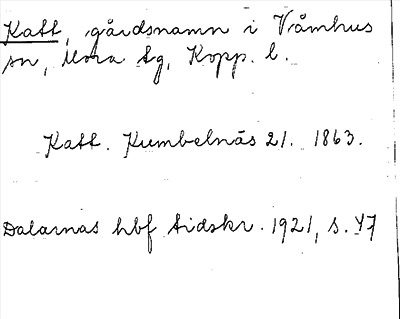 Katt, gårdsnamn i Våmhus
sn, Mora tg, Kopp. l.
Katt. Kumbelnäs 21. 1863.
Dalarnas hbf tidskr. 1921, s. 47